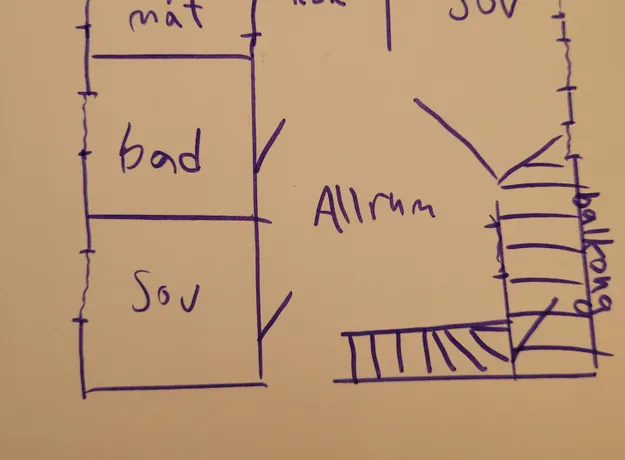 mát
sov
bad
Allrum
balkong
Sov